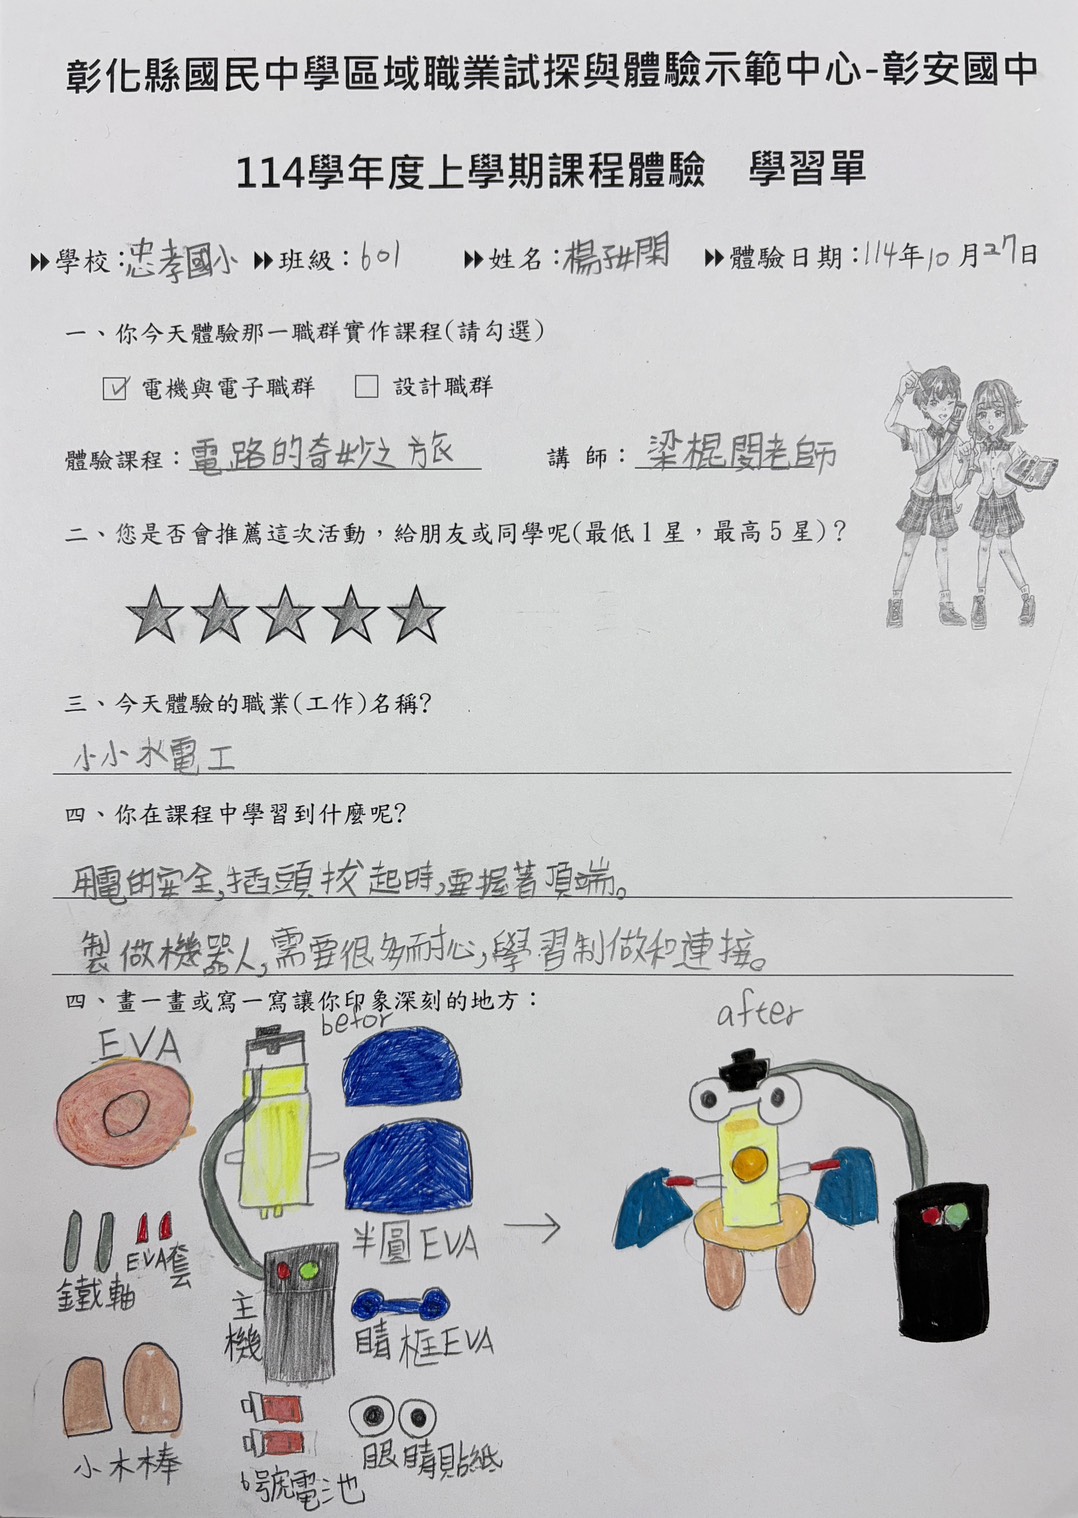 彰化縣國民中學區域職業試探與體驗示範中心-彰安國中
114學年度上學期課程體驗 學習單
學校：忠孝國小 班級：601 姓名：楊 閑 體驗日期：114年10月27日
一、你今天體驗那一職群實作課程(請勾選)
☑ 電機與電子職群 ☐ 設計職群
體驗課程：電路的奇妙之旅 講 師：梁棍閔老師
二、您是否會推薦這次活動，給朋友或同學呢(最低1星，最高5星)？
三、今天體驗的職業(工作)名稱?
小小水電工
四、你在課程中學習到什麼呢?
用電的安全,插頭拔起時,要握著頂端。
製做機器人,需要很多耐心,學習制做和連接。
四、畫一畫或寫一寫讓你印象深刻的地方：
befor
after
EVA
半圓EVA
鐵軸
EVA套
主機
睛框EVA
小木棒
6號電池
眼睛貼紙